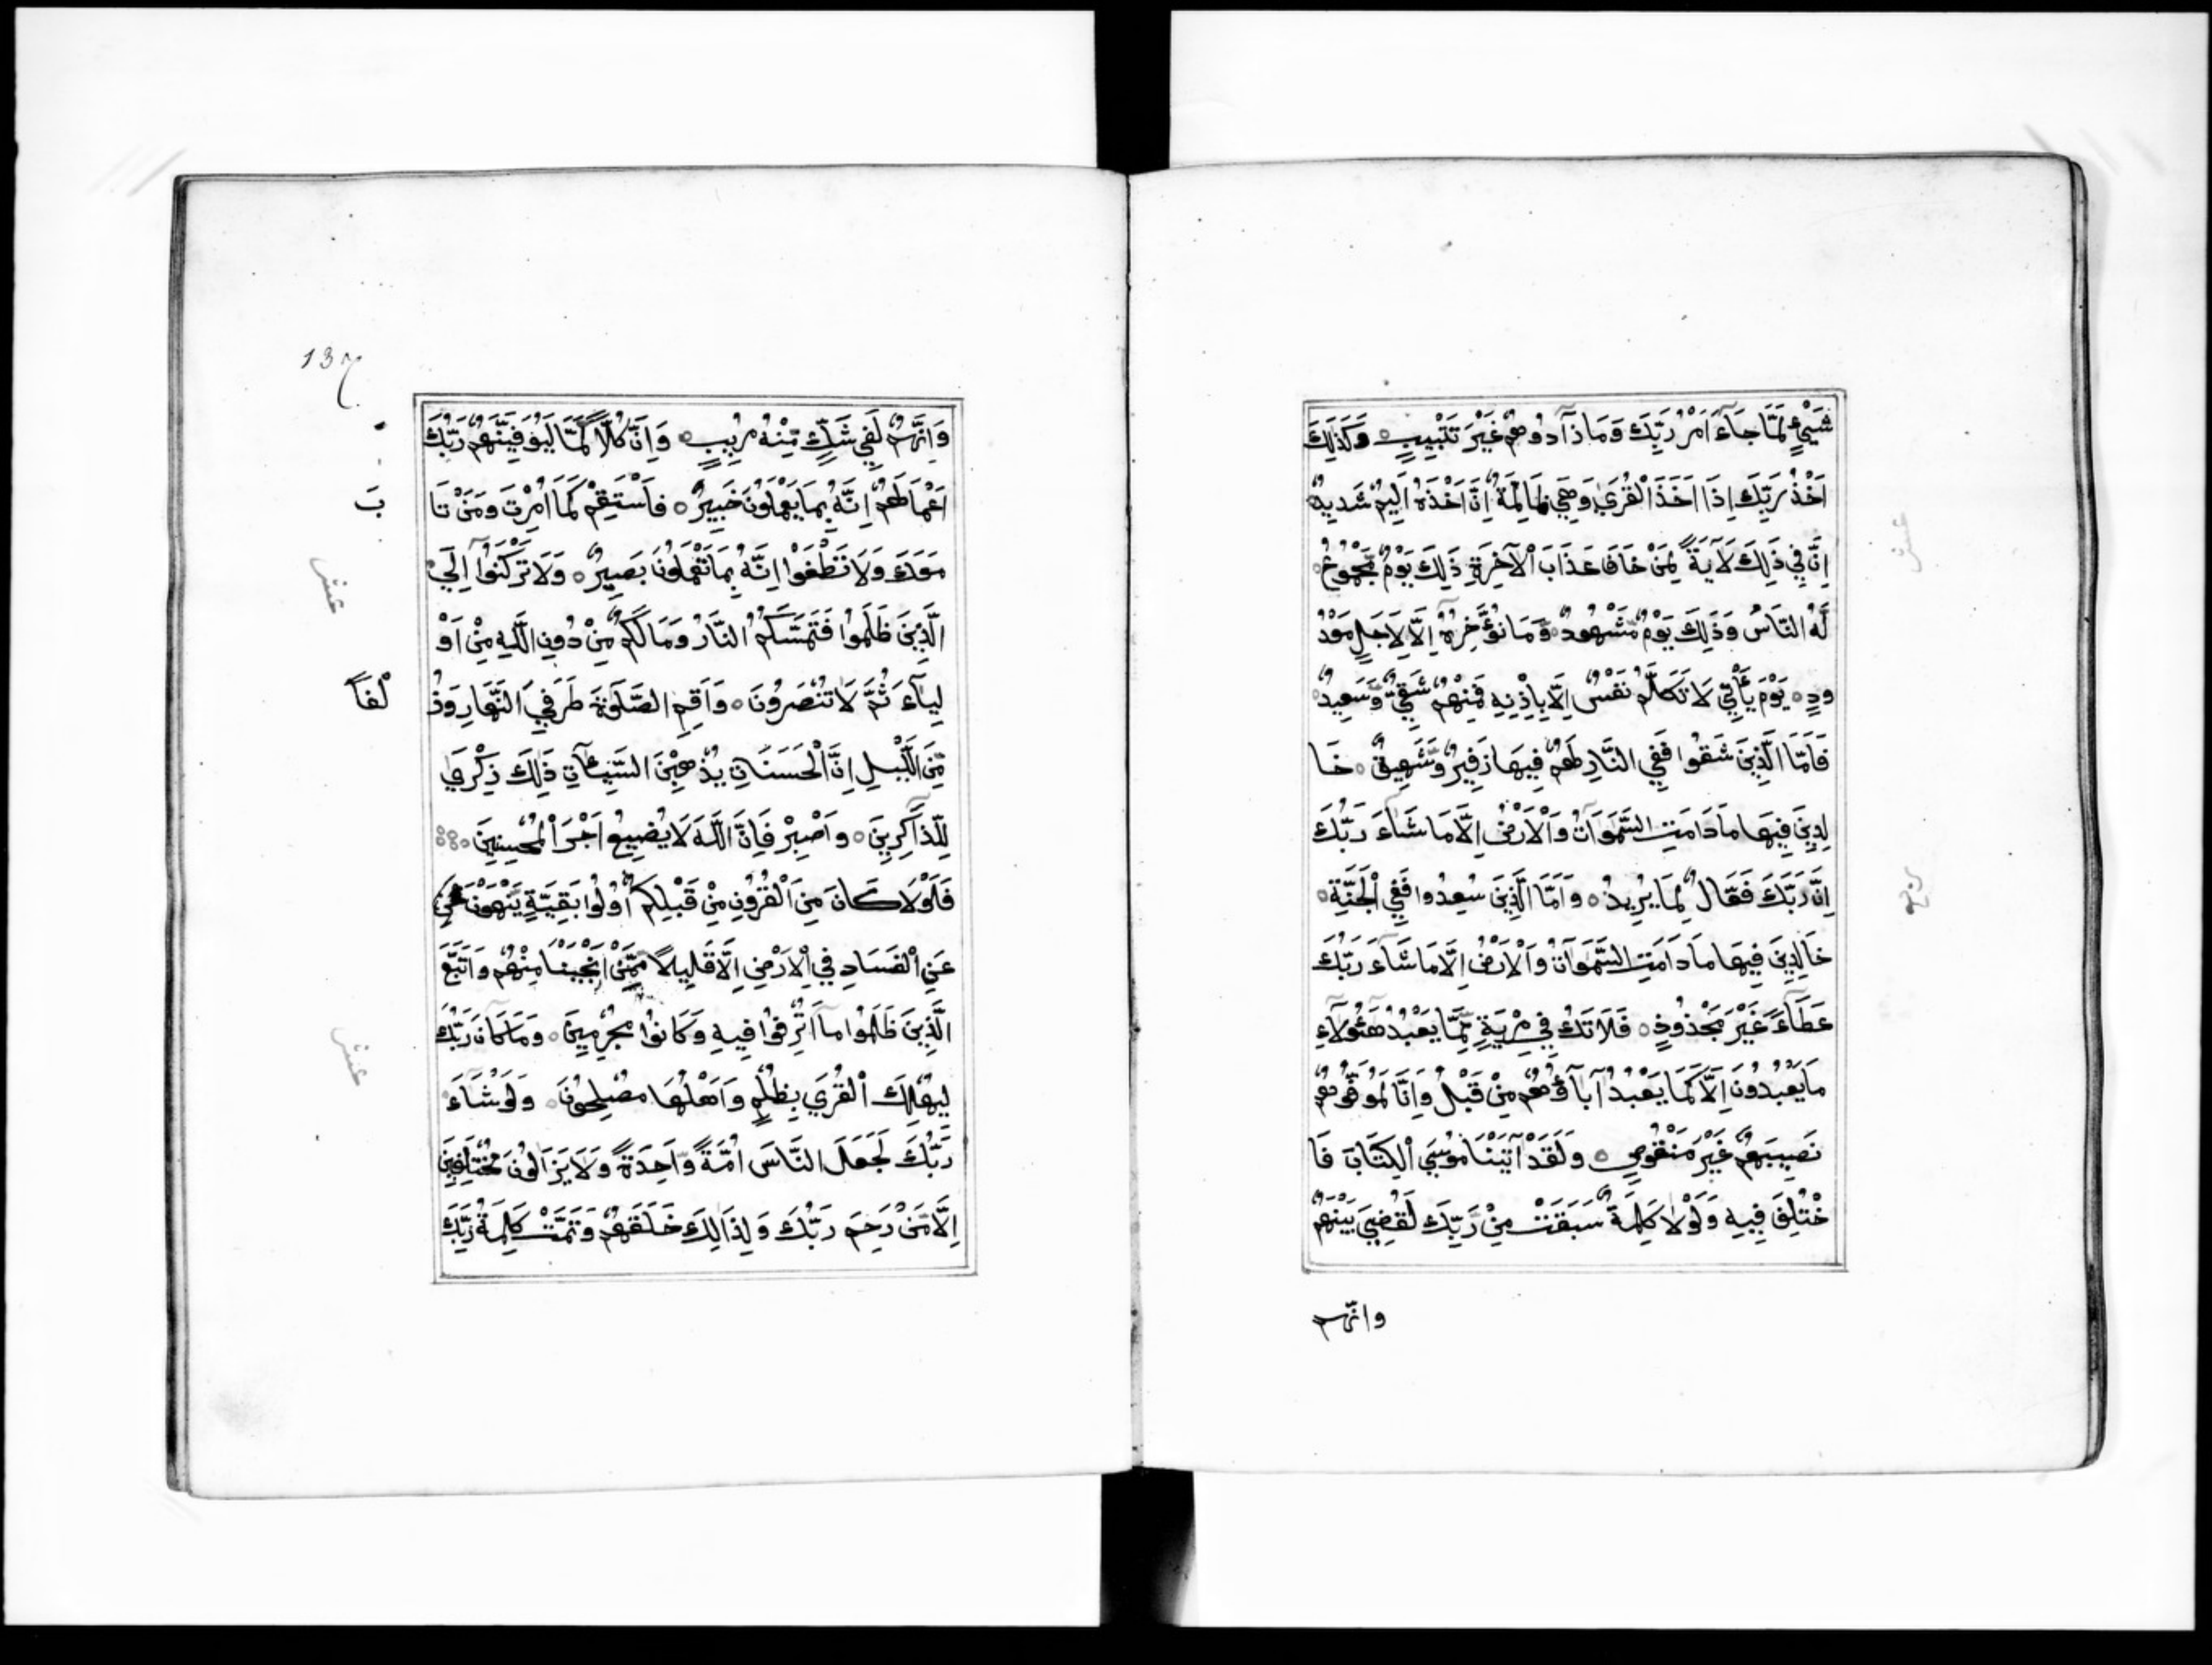 شَيْءٍ لَمَّا جَآءَ اَمْرُ رَبِّكَ وَمَا زَآدُوهُمْ غَيْرَ تَتْبِيبٍ ۝ وَكَذٰلِكَ
اَخْذُ رَبِّكَ اِذَا اَخَذَ الْقُرَىٰ وَهِيَ ظَالِمَةٌ اِنَّ اَخْذَهُ اَلِيمٌ شَدِيدٌ
اِنَّ فِي ذَلِكَ لَآيَةً لِمَنْ خَافَ عَذَابَ الْآخِرَةِ ذَلِكَ يَوْمٌ مَجْمُوعٌ
لَهُ النَّاسُ وَذَلِكَ يَوْمٌ مَشْهُودٌ ۝ وَمَا نُؤَخِّرُهُ اِلَّا لِاَجَلٍ مَعْدُ
ودٍ ۝ يَوْمَ يَأْتِي لَا تَكَلَّمُ نَفْسٌ اِلَّا بِاِذْنِهِ فَمِنْهُمْ شَقِيٌّ وَسَعِيدٌ ۝
فَاَمَّا الَّذِينَ شَقُوا فَفِي النَّارِ لَهُمْ فِيهَا زَفِيرٌ وَشَهِيقٌ ۝ خَا
لِدِينَ فِيهَا مَا دَامَتِ السَّمَوَاتُ وَالْاَرْضُ اِلَّا مَا شَاءَ رَبُّكَ
اِنَّ رَبَّكَ فَعَّالٌ لِمَا يُرِيدُ ۝ وَاَمَّا الَّذِينَ سُعِدُوا فَفِي الْجَنَّةِ ۝
خَالِدِينَ فِيهَا مَا دَامَتِ السَّمَوَاتُ وَالْاَرْضُ اِلَّا مَا شَاءَ رَبُّكَ
عَطَآءً غَيْرَ مَجْذُوذٍ ۝ فَلَا تَكُ فِي مِرْيَةٍ مِّمَّا يَعْبُدُ هَـٰؤُلَآءِ
مَا يَعْبُدُونَ اِلَّا كَمَا يَعْبُدُ آبَآؤُهُمْ مِنْ قَبْلُ وَاِنَّا لَمُوَفُّوهُمْ
نَصِيبَهُمْ غَيْرَ مَنْقُوصٍ ۝ وَلَقَدْ آتَيْنَا مُوسَى الْكِتَابَ فَا
خْتُلِفَ فِيهِ وَلَوْلَا كَلِمَةٌ سَبَقَتْ مِنْ رَبِّكَ لَقُضِيَ بَيْنَهُمْ
وانهم
عشر
137
وَاِنَّهُمْ لَفِي شَكٍّ مِّنْهُ مُرِيبٍ ۝ وَاِنَّ كُلًّا لَمَّا لَيُوَفِّيَنَّهُمْ رَبُّكَ
اَعْمَالَهُمْ اِنَّهُ بِمَا يَعْمَلُونَ خَبِيرٌ ۝ فَاسْتَقِمْ كَمَا اُمِرْتَ وَمَنْ تَا
بَ
مَعَكَ وَلَا تَطْغَوْا اِنَّهُ بِمَا تَعْمَلُونَ بَصِيرٌ ۝ وَلَا تَرْكَنُوآ اِلَى
عشر
الَّذِينَ ظَلَمُوا فَتَمَسَّكُمُ النَّارُ وَمَا لَكُمْ مِنْ دُونِ اللَّهِ مِنْ اَوْ
لِيَآءَ ثُمَّ لَا تُنْصَرُونَ ۝ وَاَقِمِ الصَّلَوٰةَ طَرَفَيِ النَّهَارِ وَزُ
لَفًا
مِّنَ اللَّيْلِ اِنَّ الْحَسَنَاتِ يُذْهِبْنَ السَّيِّئَآتِ ذَلِكَ ذِكْرَى
لِلذَّاكِرِينَ ۝ وَاصْبِرْ فَاِنَّ اللَّهَ لَا يُضِيعُ اَجْرَ الْمُحْسِنِينَ ۝
فَلَوْلَا كَانَ مِنَ الْقُرُونِ مِنْ قَبْلِكُمْ اُولُوا بَقِيَّةٍ يَنْهَوْنَ عَنِ
عَنِ الْفَسَادِ فِي الْاَرْضِ اِلَّا قَلِيلًا مِمَّنْ اَنْجَيْنَا مِنْهُمْ وَاتَّبَعَ
الَّذِينَ ظَلَمُوا مَآ اُتْرِفُوا فِيهِ وَكَانُوا مُجْرِمِينَ ۝ وَمَا كَانَ رَبُّكَ
عشر
لِيُهْلِكَ الْقُرَى بِظُلْمٍ وَاَهْلُهَا مُصْلِحُونَ ۝ وَلَوْ شَاءَ
رَبُّكَ لَجَعَلَ النَّاسَ اُمَّةً وَّاحِدَةً وَلَا يَزَالُونَ مُخْتَلِفِينَ
اِلَّا مَنْ رَحِمَ رَبُّكَ وَلِذَالِكَ خَلَقَهُمْ وَتَمَّتْ كَلِمَةُ رَبِّكَ